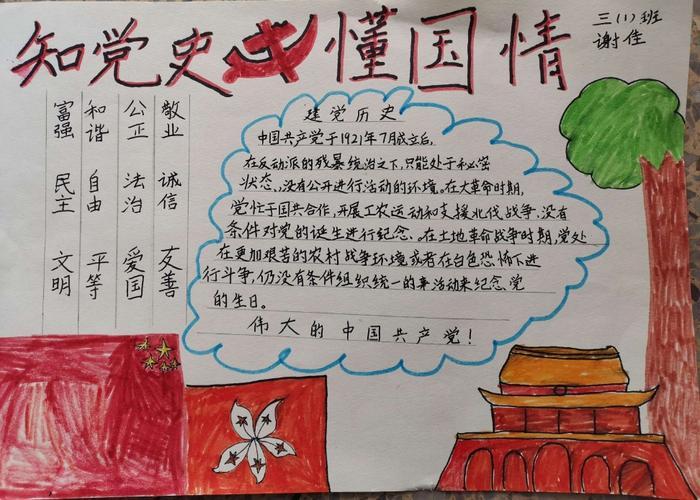 知党史 懂国情
三(1)班
谢佳
富强 民主 文明
和谐 自由 平等
公正 法治 爱国
敬业 诚信 友善
建党历史
中国共产党于1921年7月成立后,
在反动派的残暴统治之下,只能处于秘密
状态、没有公开进行活动的环境。在大革命时期,
党忙于国共合作,开展工农运动和支援北伐战争、没有
条件对党的诞生进行纪念、。在土地革命战争时期,党处
在更加艰苦的农村战争环境或者在白色恐怖下进
行斗争,仍没有条件组织统一的 活动来纪念党
的生日。
伟大的中国共产党!